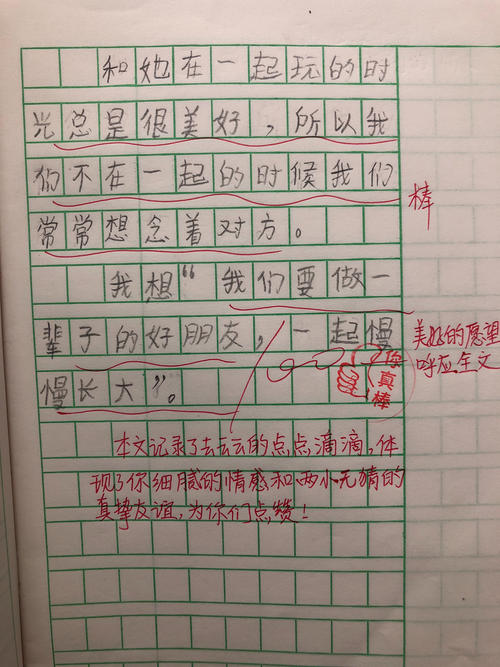 和她在一起玩的时
光总是很美好，所以我
们不在一起的时候我们
常常想念着对方。
我想“我们要做一
辈子的好朋友，一起慢
慢长大”。
棒
美好的愿望
呼应全文
你真棒
本文记录了去云云的点点滴滴，体
现了你细腻的情感和两小无猜的
真挚友谊，为你们点赞！